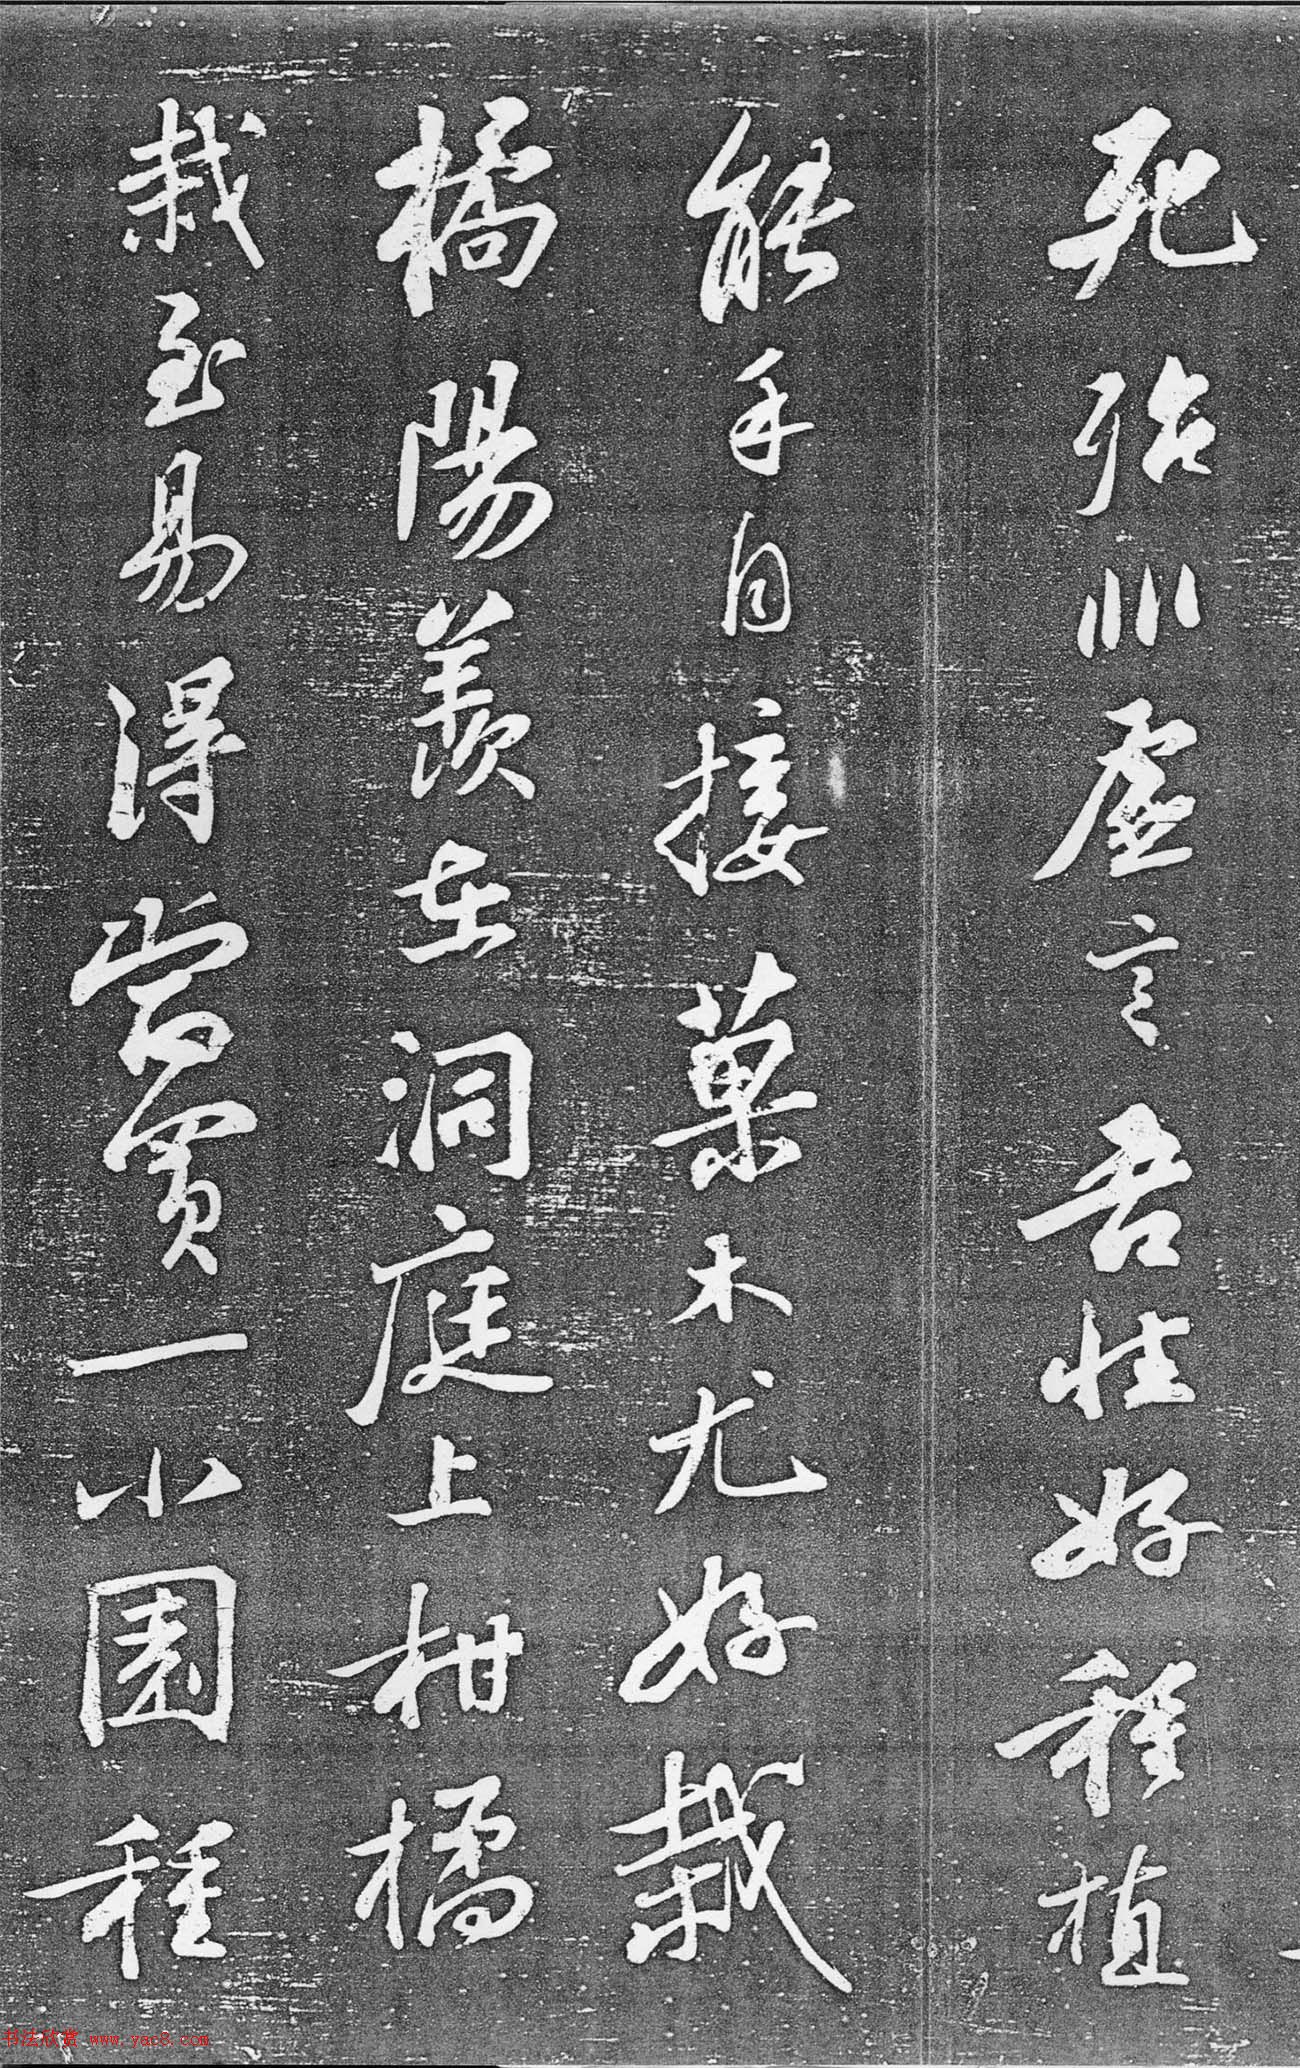 死殆非虛言吾性好種植
能手自接菓木尤好栽
橘陽羨在洞庭上柑橘
栽至易得當買一小園種
书法欣赏 www.yac8.com